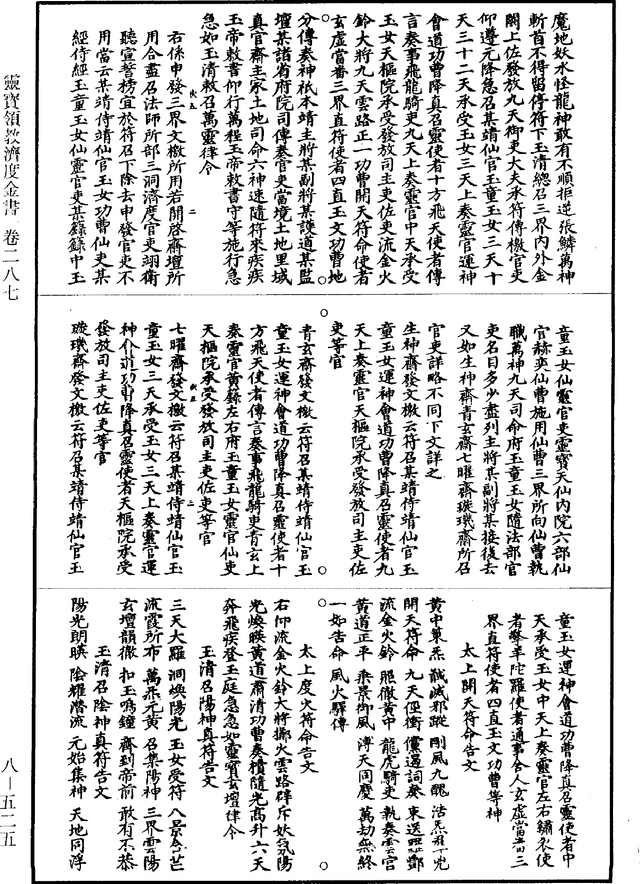 魔地妖水怪龍神敢有不順拒逆張鱗萬神
斬首不得留停符下玉清總召三界內外金
闕上佐發放九天御吏大夫承符傳檄官吏
仰遵元降急召某靖仙官玉童玉女三天十
天三十二天承受玉女三天上奏靈官運神
會道功曹降真召靈使者十方飛天使者傳
言奏事飛龍騎吏九天上奏靈官中天承受
玉女天樞院承受發放司主吏佐吏流金火
鈴大將九天雲路正一功曹開天符命使者
玄虛當番三界直符使者四直玉文功曹地
分傳奏神祇本靖主將某副將某護道某監
壇某諸省府院司傳奏官吏當境土地里域
真官齋主家土地司命六神速隨符來疾疾
玉帝敕書仰行萬程玉帝敕書守等施行急
急如玉清敕召萬靈律令
右係申發三界文檄所用若開啓齋壇所
用合盡召法師所部三洞濟度官吏翊衛
聽宣誓榜宜於符召下除去申發官吏不
用當云某靖侍靖仙官玉女功曹仙吏某
經侍經玉童玉女仙靈官吏某籙籙中玉
童玉女仙靈官吏靈寶天仙內院六部仙
官赫奕仙曹施用仙曹三界所向仙曹執
職萬神九天司命府玉童玉女隨法部官
吏名目多少盡列主將某副將某接後去
又如生神齋青玄齋七曜齋璇璣齋所召
官吏詳略不同下文詳之
生神齋發文檄云符召某靖侍靖仙官玉
童玉女運神會道功曹降真召靈使者九
天上奏靈官天樞院承受發放司主吏佐
吏等官
青玄齋發文檄云符召某靖侍靖仙官玉
童玉女運神會道功曹降真召靈使者十
方飛天使者傳言奏事飛龍騎吏青玄上
奏靈官黃籙左右府玉童玉女靈官仙吏
天樞院承受發放司主吏佐吏等官
七曜齋發文檄云符召某靖侍靖仙官玉
童玉女三天承受玉女三天上奏靈官運
神會道功曹降真召靈使者天樞院承受
發放司主吏佐吏等官
璇璣齋發文檄云符召某靖侍靖仙官玉
童玉女運神會道功曹降真召靈使者中
天承受玉女中天上奏靈官左右繡衣使
者擎羊陀羅使者通事舍人玄虛當番三
界直符使者四直玉文功曹等神
太上開天符命告文
黃中策炁 馘滅邪蹤 剛風九醜 浩炁
開天符命 九天徑衝 儻遏詞奏 東送酆
流金火鈴 照徹黃中 龍虎騎吏 執奏雲宮
黃道正平 乘景御風 溥天同慶 萬劫無終
一如告命 風火驛傳
太上度火符命告文
右仰流金火鈴大將擲火雲路辟斥妖氛陽
光煥暎黃道肅清功曹奏櫝隨光高升六天
奔飛疾登玉庭急急如靈寶玄壇律令
玉清召陽神真符告文
三天大羅 洞煥陽光 玉女受符 八景金芒
流霞所布 萬炁元黃 召集陽神 三界雲陽
玄壇韻徹 扣玉鳴鐘 齋到帝前 敢有不恭
玉清召陰神真符告文
陽光朗暎 陰耀潛流 元始集神 天地同浮
靈寶領教濟度金書 卷二八七
八—五二五